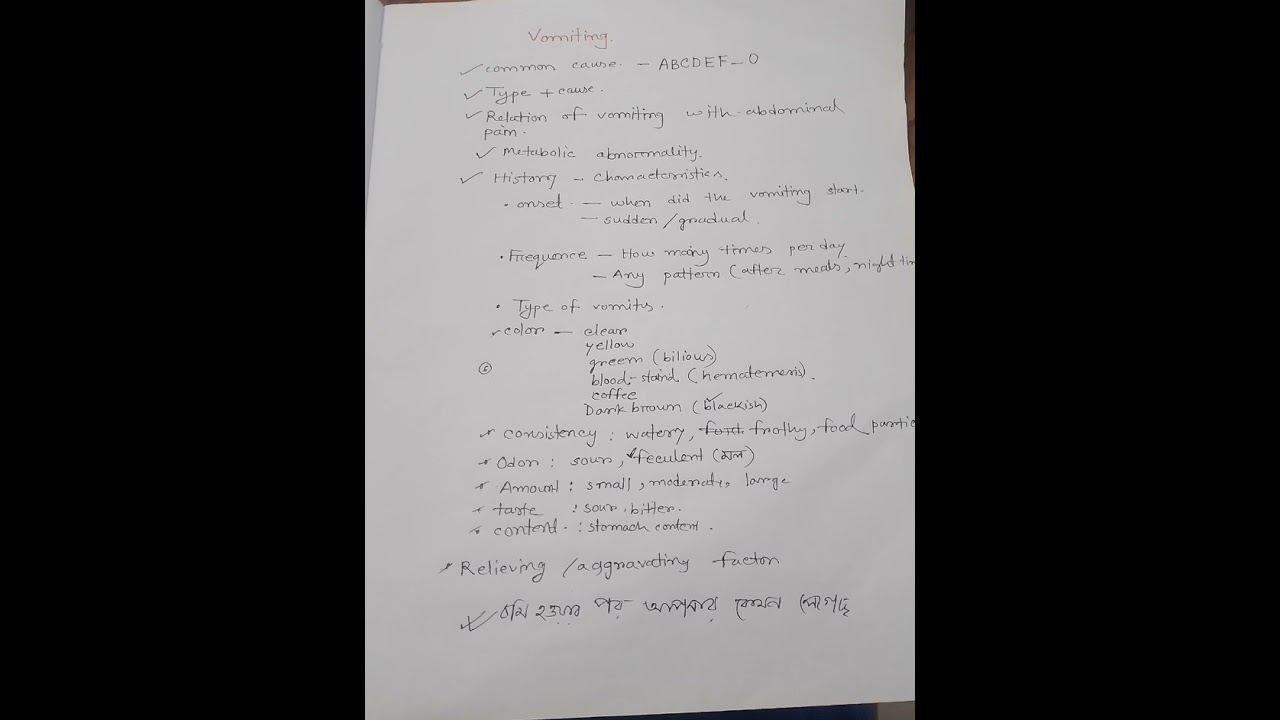 Vomiting.
✓ common cause. - ABCDEF - O
✓ Type + cause.
✓ Relation of vomiting with abdominal
pain.
✓ Metabolic abnormality.
✓ History - characteristics.
• onset - when did the vomiting start.
- sudden / gradual.
• Frequence - How many times per day
- Any pattern (after meals, night tim
• Type of vomitus.
✓ color - clear
yellow
green (bilious)
blood-staind (hematemesis).
coffee
Dark brown (blackish)
* consistency : watery, frothy, food partic
* Odor : sour, feculent (মল)
* Amount : small, moderate, large
* taste : sour, bitter.
* content : stomach content.
* Relieving / aggravating factor
বমি হওয়ার পর আপনার কেমন লেগেছে